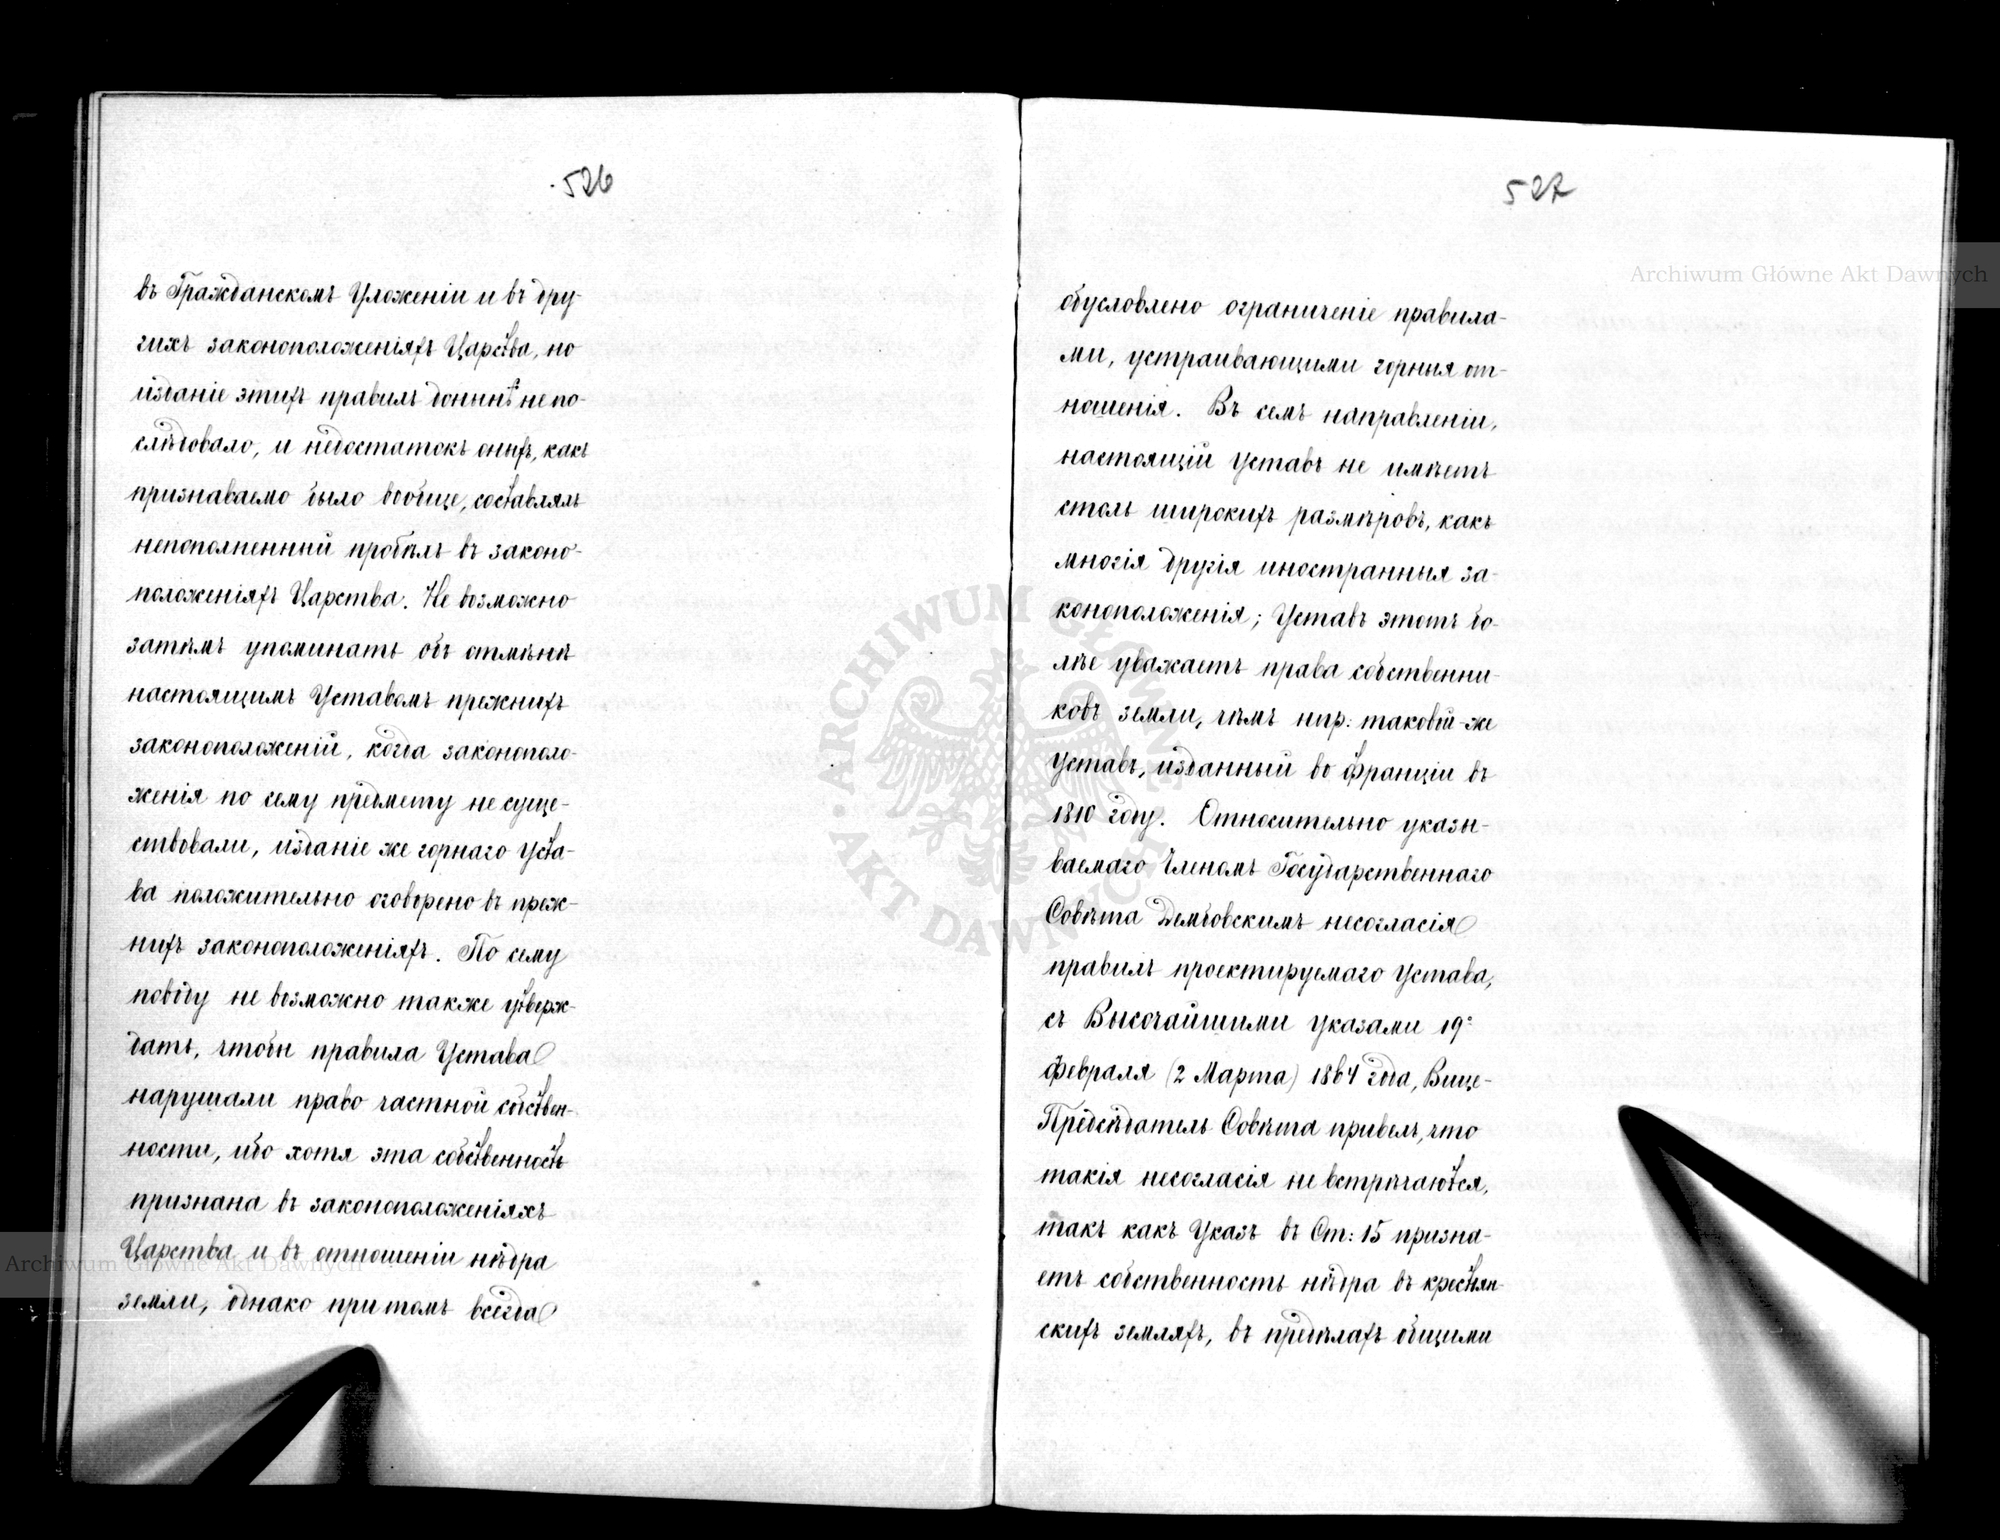 526
въ Гражданскомъ Уложеніи и въ дру-
гихъ законоположеніяхъ Царства, но
изданіе этихъ правилъ донынѣ не по-
слѣдовало, и недостатокъ онихъ, какъ
признаваемо было вообще, составлялъ
непополненный пробѣлъ въ законо-
положеніяхъ Царства. Не возможно
затѣмъ упоминать объ отмѣнѣ
настоящимъ Уставомъ прежнихъ
законоположеній, когда законополо-
женія по сему предмету не суще-
ствовали, изданіе же горнаго Уста-
ва положительно оговорено въ преж-
нихъ законоположеніяхъ. По сему
поводу не возможно также утверж-
дать, чтобы правила Устава
нарушали право частной собствен-
ности, ибо хотя эта собственность
признана въ законоположеніяхъ
Царства и въ отношеніи нѣдра
земли, однако притомъ всегда
527
обусловлено ограниченіе правила-
ми, устраивающими горныя от-
ношенія. Въ семъ направленіи,
настоящій Уставъ не имѣетъ
столь широкихъ размѣровъ, какъ
многія другія иностранныя за-
коноположенія; Уставъ этотъ бо-
лѣе уважаетъ права собственни-
ковъ земли, чѣмъ нпр: таковой-же
Уставъ, изданный во Франціи въ
1810 году. Относительно указы-
ваемаго Членомъ Государственнаго
Совѣта Дембовскимъ несогласія
правилъ проектируемаго Устава,
съ Высочайшими Указами 19
Февраля (2 Марта) 1864 года, Вице-
Предсѣдатель Совѣта привелъ, что
такія несогласія не встрѣчаются,
такъ какъ Указъ въ Ст: 15 призна-
етъ собственность нѣдра въ крестьян-
скихъ земляхъ, въ предѣлахъ общими
Archiwum Główne Akt Dawnych
Archiwum Główne Akt Dawnych
ARCHIWUM GŁÓWNE AKT DAWNYCH